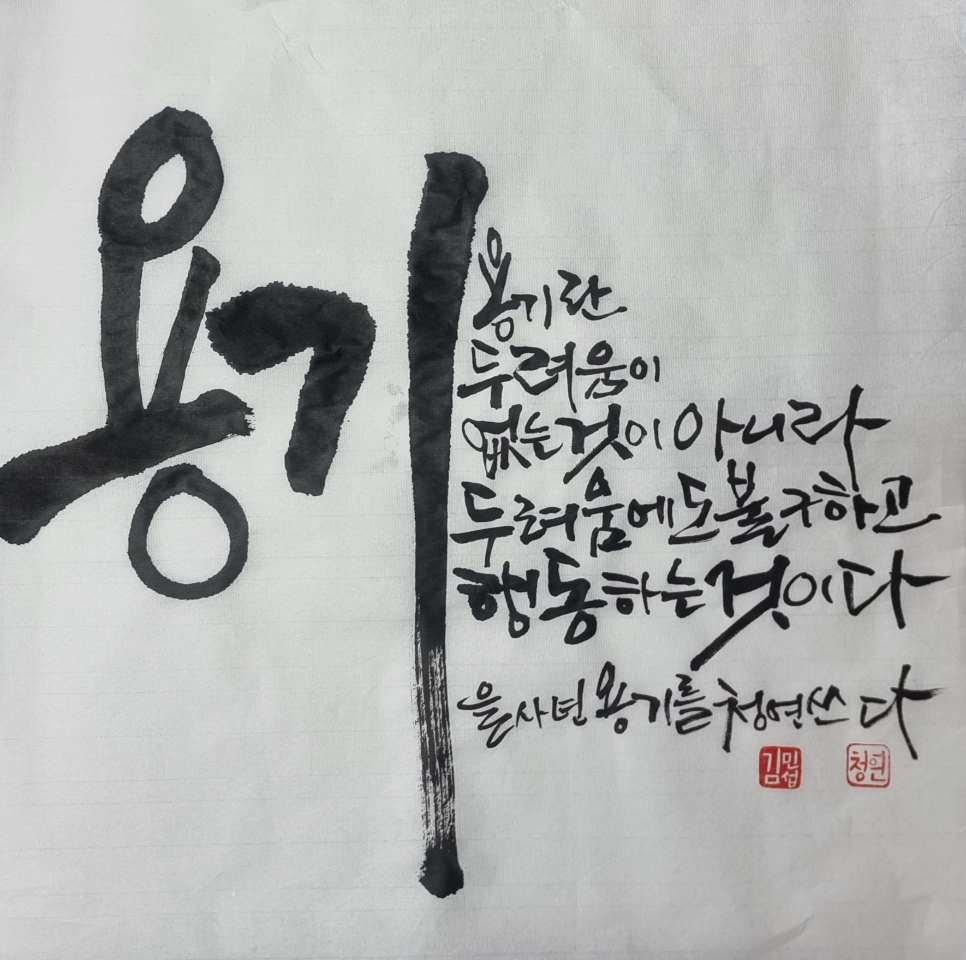 용기
용기란
두려움이
없는것이 아니라
두려움에도 불구하고
행동하는것이다
을사년 용기를 청연쓰다
김민섭
청연